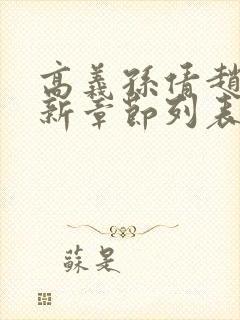 高義孫倩趙
新章節列表
蘇是